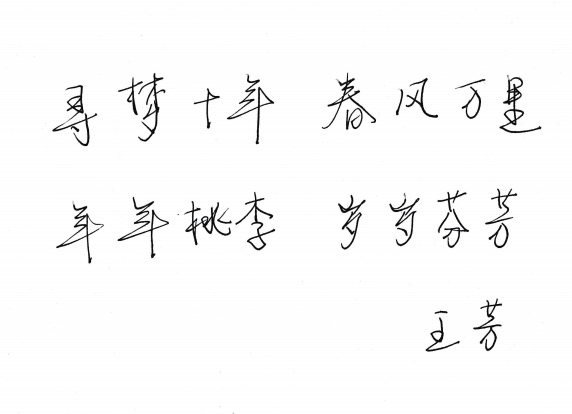 寻梦十年 春风万里
年年桃李 岁岁芬芳
王芳